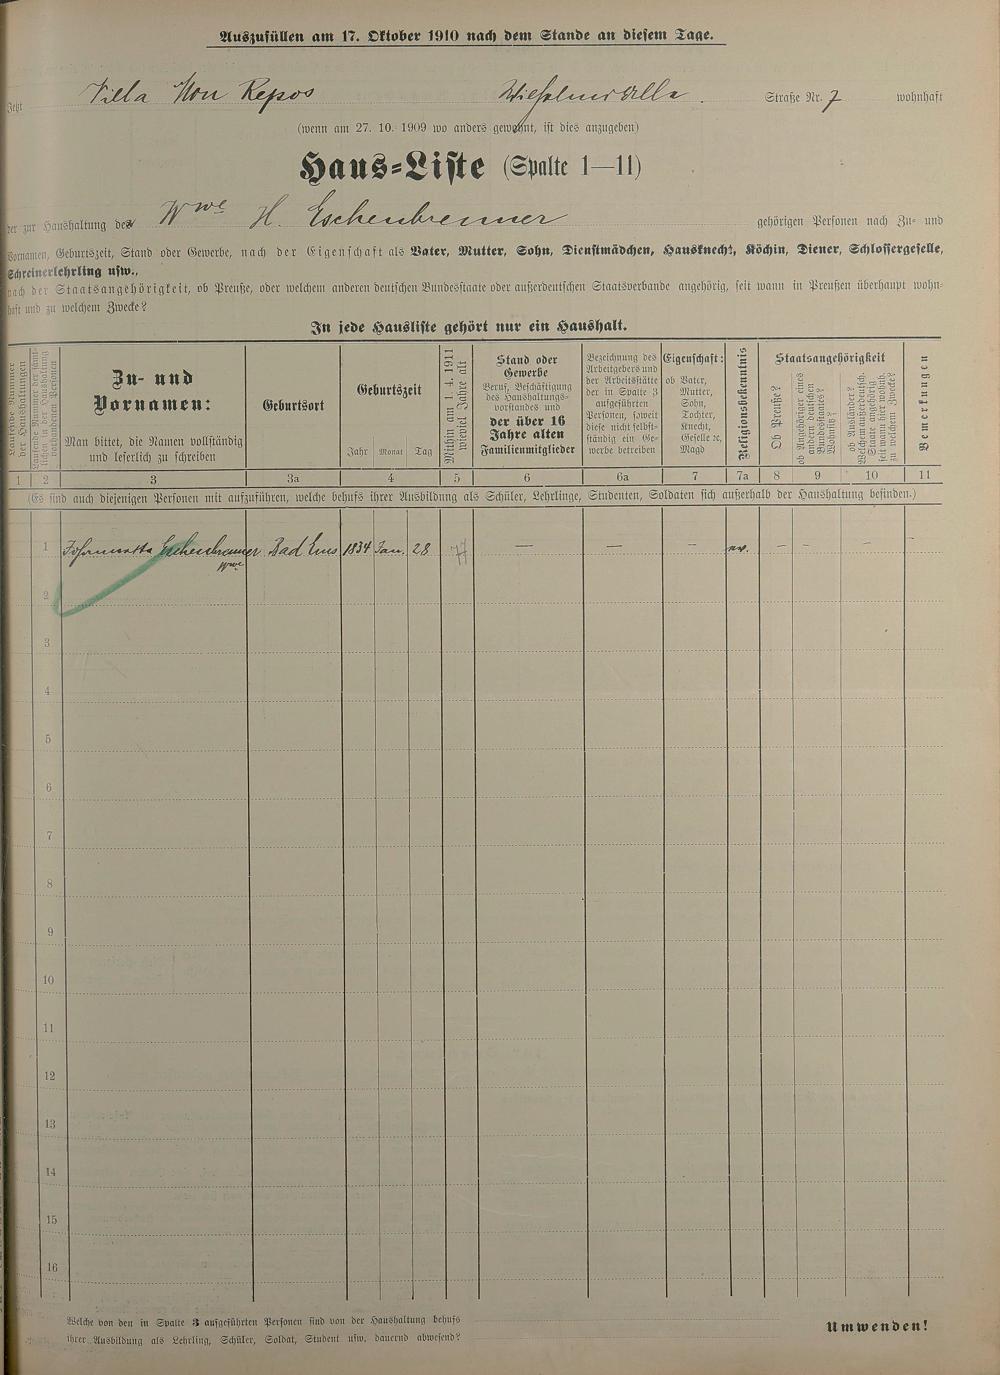 Auszufüllen am 17. Oktober 1910 nach dem Stande an diesem Tage.
Jetzt Villa Mon Repos Straße Nr. 7 wohnhaft
(wenn am 27. 10. 1909 wo anders gewohnt, ist dies anzugeben)
Haus-Liste (Spalte 1—11)
der zur Haushaltung des Wwe H. Eschenbrenner gehörigen Personen nach Zu- und
Vornamen, Geburtszeit, Stand oder Gewerbe, nach der Eigenschaft als Vater, Mutter, Sohn, Dienstmädchen, Hausknecht, Köchin, Diener, Schlossergeselle,
Schreinerlehrling usw.,
nach der Staatsangehörigkeit, ob Preuße, oder welchem anderen deutschen Bundesstaate oder außerdeutschen Staatsverbande angehörig, seit wann in Preußen überhaupt wohn-
haft und zu welchem Zwecke?
In jede Hausliste gehört nur ein Haushalt.
Laufende Nummer
der Haushaltungen
Laufende Nummer der sämt-
lichen in der Haushaltung
vorhandenen Personen
Zu- und
Vornamen:
Man bittet, die Namen vollständig
und leserlich zu schreiben
Geburtsort
Geburtszeit
Jahr Monat Tag
Mithin am 1. 4. 1911
wieviel Jahre alt
Stand oder
Gewerbe
Beruf, Beschäftigung
des Haushaltungs-
vorstandes und
der über 16
Jahre alten
Familienmitglieder
Bezeichnung des
Arbeitgebers und
der Arbeitsstätte
der in Spalte 3
aufgeführten
Personen, soweit
diese nicht selbst-
ständig ein Ge-
werbe betreiben
Eigenschaft:
ob Vater,
Mutter,
Sohn,
Tochter,
Knecht,
Geselle ec,
Magd
Religionsbekenntnis
Staatsangehörigkeit
Ob Preuße?
ob Angehöriger eines
andern deutschen
Bundesstaates?
Wohnsitz?
ob Ausländer?
Welchem außerdeutsch.
Staate angehörig
seit wann hier wohnh.
zu welchem Zwecke?
Bemerkungen
1 2 3 3a 4 5 6 6a 7 7a 8 9 10 11
(Es sind auch diejenigen Personen mit aufzuführen, welche behufs ihrer Ausbildung als Schüler, Lehrlinge, Studenten, Soldaten sich außerhalb der Haushaltung befinden.)
1 Johannetta Eschenbrenner Bad Ems 1834 Jan. 28 77 — — — ev. — — — —
Wwe
2
3
4
5
6
7
8
9
10
11
12
13
14
15
16
Welche von den in Spalte 3 aufgeführten Personen sind von der Haushaltung behufs
ihrer Ausbildung als Lehrling, Schüler, Soldat, Student usw. dauernd abwesend?
Umwenden!